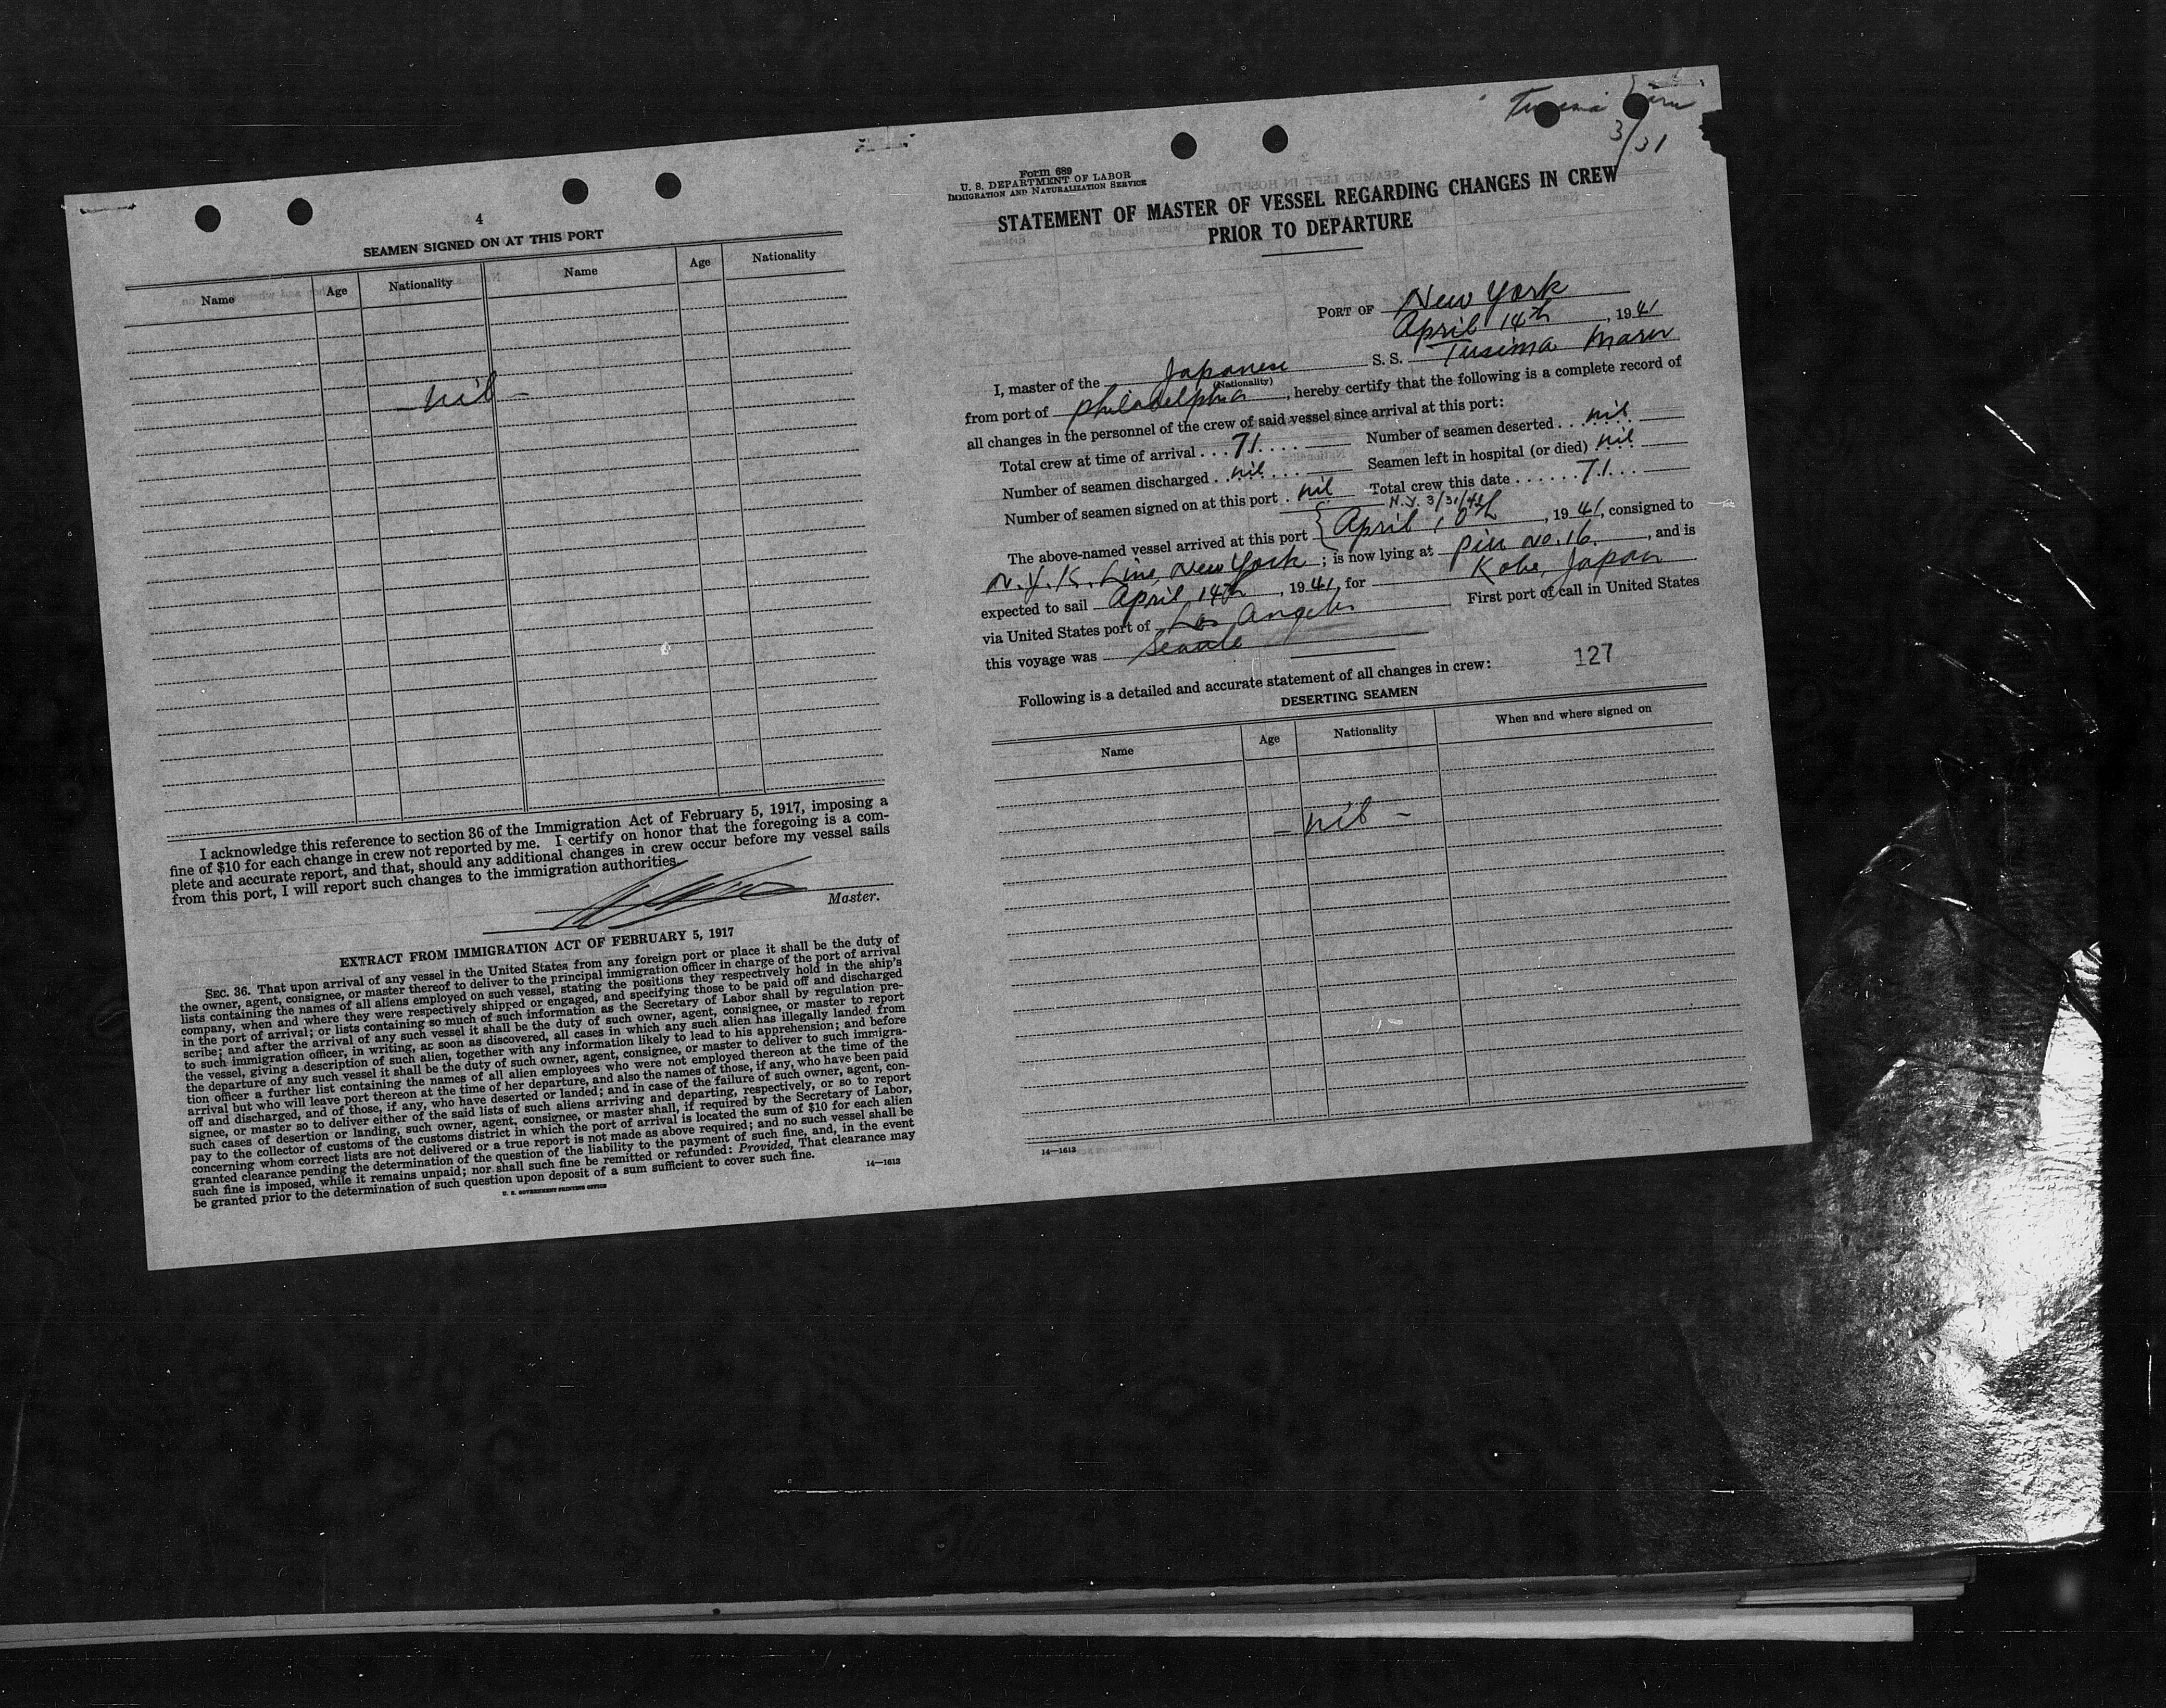 4
SEAMEN SIGNED ON AT THIS PORT
Name Age Nationality Name Age Nationality
- nil -
I acknowledge this reference to section 36 of the Immigration Act of February 5, 1917, imposing a
fine of $10 for each change in crew not reported by me. I certify on honor that the foregoing is a com-
plete and accurate report, and that, should any additional changes in crew occur before my vessel sails
from this port, I will report such changes to the immigration authorities.
Master.
EXTRACT FROM IMMIGRATION ACT OF FEBRUARY 5, 1917
SEC. 36. That upon arrival of any vessel in the United States from any foreign port or place it shall be the duty of
the owner, agent, consignee, or master thereof to deliver to the principal immigration officer in charge of the port of arrival
lists containing the names of all aliens employed on such vessel, stating the positions they respectively hold in the ship's
company, when and where they were respectively shipped or engaged, and specifying those to be paid off and discharged
in the port of arrival; or lists containing so much of such information as the Secretary of Labor shall by regulation pre-
scribe; and after the arrival of any such vessel it shall be the duty of such owner, agent, consignee, or master to report
to such immigration officer, in writing, as soon as discovered, all cases in which any such alien has illegally landed from
the vessel, giving a description of such alien, together with any information likely to lead to his apprehension; and before
the departure of any such vessel it shall be the duty of such owner, agent, consignee, or master to deliver to such immigra-
tion officer a further list containing the names of all alien employees who were not employed thereon at the time of the
arrival but who will leave port thereon at the time of her departure, and also the names of those, if any, who have been paid
off and discharged, and of those, if any, who have deserted or landed; and in case of the failure of such owner, agent, con-
signee, or master so to deliver either of the said lists of such aliens arriving and departing, respectively, or so to report
such cases of desertion or landing, such owner, agent, consignee, or master shall, if required by the Secretary of Labor,
pay to the collector of customs of the customs district in which the port of arrival is located the sum of $10 for each alien
concerning whom correct lists are not delivered or a true report is not made as above required; and no such vessel shall be
granted clearance pending the determination of the question of the liability to the payment of such fine, and, in the event
such fine is imposed, while it remains unpaid; nor shall such fine be remitted or refunded: Provided, That clearance may
be granted prior to the determination of such question upon deposit of a sum sufficient to cover such fine.
U. S. GOVERNMENT PRINTING OFFICE
14—1613
3/31
Form 689
U. S. DEPARTMENT OF LABOR
IMMIGRATION AND NATURALIZATION SERVICE
STATEMENT OF MASTER OF VESSEL REGARDING CHANGES IN CREW
PRIOR TO DEPARTURE
PORT OF New York
April 14th, 1941
I, master of the Japanese S. S. Tusima Maru
(Nationality)
from port of Philadelphia, hereby certify that the following is a complete record of
all changes in the personnel of the crew of said vessel since arrival at this port:
Total crew at time of arrival . . . 71 . . . Number of seamen deserted . . . nil
Number of seamen discharged . . nil . . . Seamen left in hospital (or died) nil
Number of seamen signed on at this port . nil Total crew this date . . . . . . 71 . . .
N.Y. 3/31/41
The above-named vessel arrived at this port { April 10th, 1941, consigned to
N.Y.K. Line, New York; is now lying at Pier no. 16., and is
expected to sail April 14th, 1941, for Kobe, Japan
via United States port of Los Angeles First port of call in United States
this voyage was Seattle
127
Following is a detailed and accurate statement of all changes in crew:
DESERTING SEAMEN
Name Age Nationality When and where signed on
- nil -
14—1613